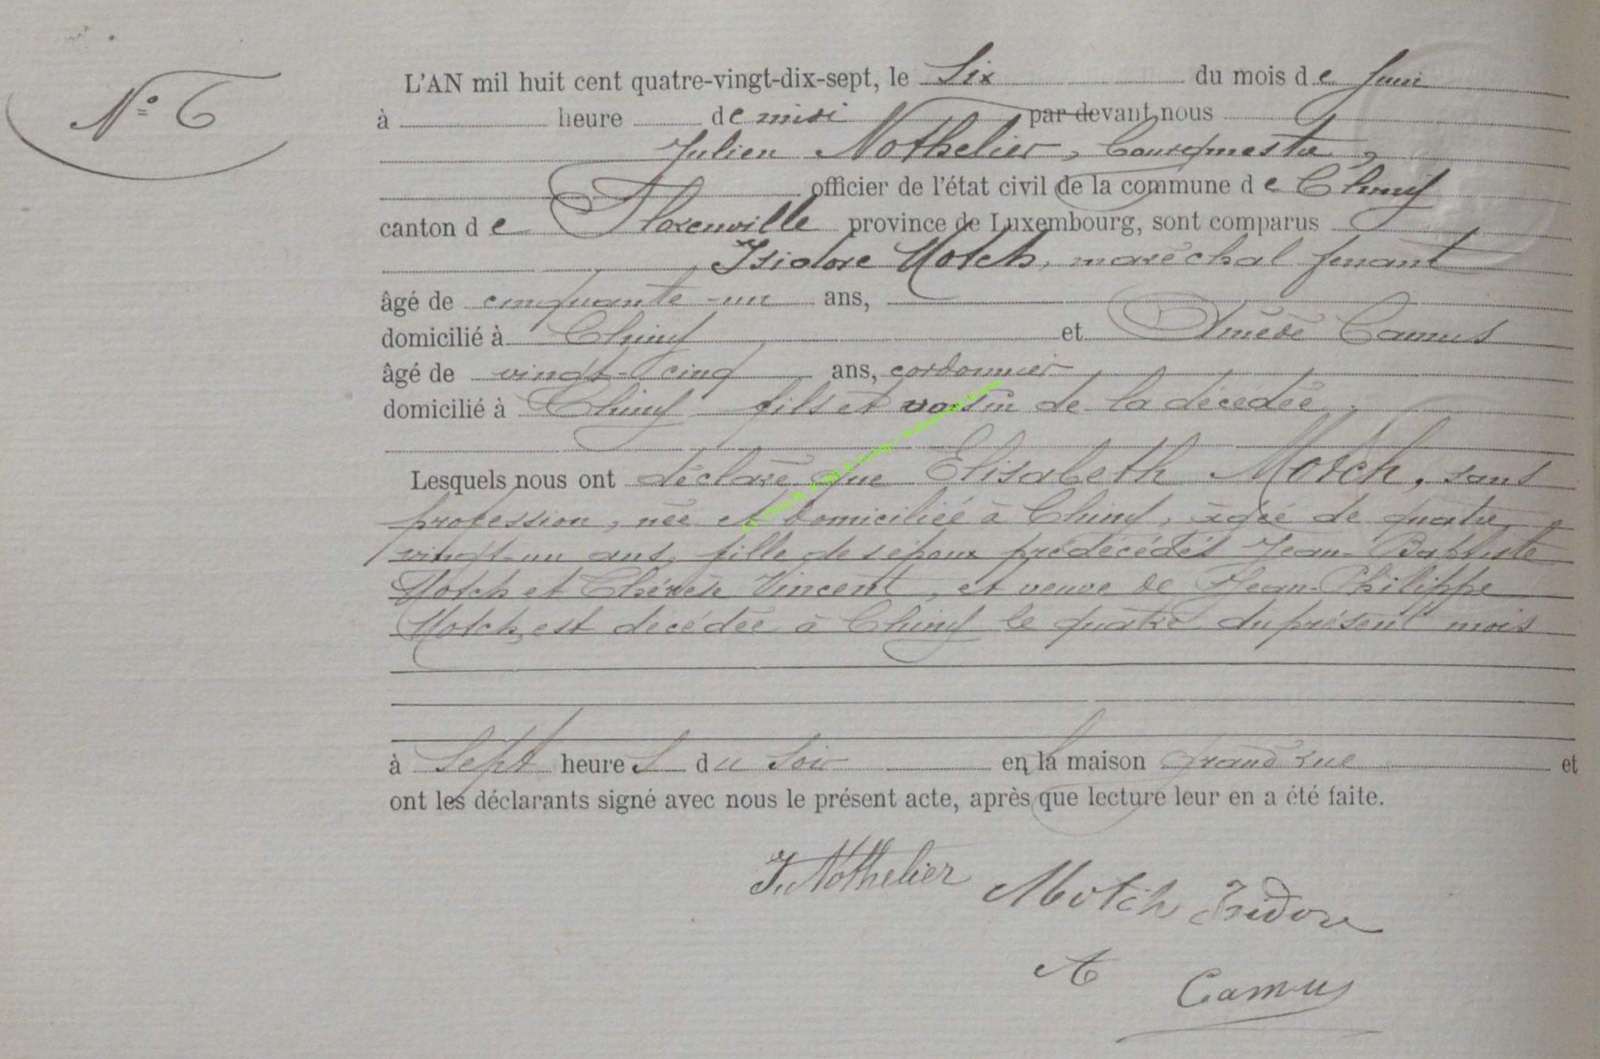 N° 6
L'AN mil huit cent quatre-vingt-dix-sept, le Six du mois de Juin
à heure de midi par devant nous
Julien Nothelier, Bourgmestre,
officier de l'état civil de la commune de Chiny
canton de Florenville province de Luxembourg, sont comparus
Isidore Motch, maréchal ferrant
âgé de cinquante-un ans,
domicilié à Chiny et Amédé Camus
âgé de vingt-cinq ans, cordonnier
domicilié à Chiny fils et voisin de la décédée.
Lesquels nous ont déclaré que Elisabeth Motch, sans
profession, née et domiciliée à Chiny, âgée de quatre
vingt-un ans, fille des époux prédécédés Jean-Baptiste
Motch et Thérèse Vincent, et veuve de Jean-Philippe
Motch, est décédée à Chiny le quatre du présent mois
à Sept heures du soir en la maison Grand'rue et
ont les déclarants signé avec nous le présent acte, après que lecture leur en a été faite.
J. Nothelier Motch Isidore
A Camus